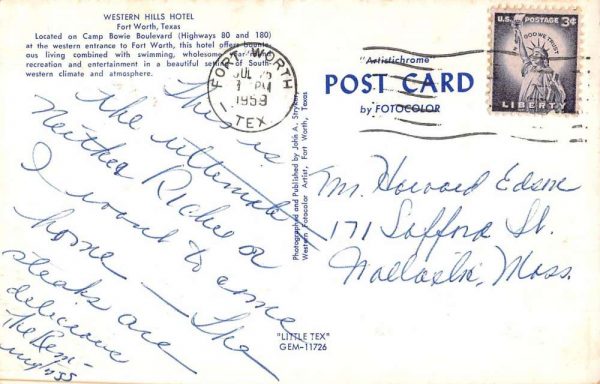 WESTERN HILLS HOTEL
Fort Worth, Texas
Located on Camp Bowie Boulevard (Highways 80 and 180)
at the western entrance to Fort Worth, this hotel offers
ous living combined with swimming, wholesome
recreation and entertainment in a beautiful setting of South-
western climate and atmosphere.
This is
the ultimate
Neither Richee or
I want to come
home — The
steaks are
delicious
The
FORT WORTH
JUL
PM
1959
TEX.
"Artistichrome
POST CARD
by FOTOCOLOR
U.S. POSTAGE 3¢
IN GOD WE TRUST
LIBERTY
Photographed and Published by John A. Stryker,
Western Fotocolor Artist, Fort Worth, Texas
Mr. Howard
171 Safford St.
Mass.
"LITTLE TEX"
GEM-11726